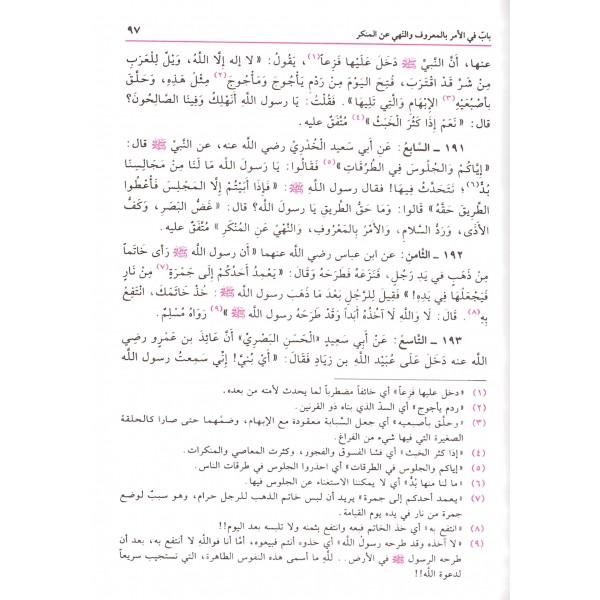 باب في الأمر بالمعروف والنهي عن المنكر ٩٧
عنها، أَنَّ النَّبِيَّ ﷺ دَخَلَ عَلَيْهَا فَزِعاً(١)، يَقُولُ: «لا إله إلَّا اللَّهُ، وَيْلٌ لِلْعَرَبِ
مِنْ شَرٍّ قَدِ اقْتَرَبَ، فُتِحَ اليَوْمَ مِنْ رَدْمِ يَأْجُوجَ وَمَأْجُوجَ(٢) مِثْلُ هَذِهِ، وَحَلَّقَ
بِأصْبُعَيْهِ(٣) الإِبْهَامِ وَالَّتِي تَلِيهَا». فَقُلْتُ: يَا رسول اللَّهِ أَنَهْلِكُ وَفِينَا الصَّالِحُونَ؟
قال: «نَعَمْ إِذَا كَثُرَ الْخَبَثُ»(٤) مُتَّفَقٌ عليه.
١٩١ ـ السابعُ: عَنِ أَبي سعيد الْخُدْرِيِّ رضي الله عنه، عن النَّبِيِّ ﷺ قال:
«إِيَّاكُمْ وَالْجُلُوسَ فِي الطُّرُقَاتِ»(٥) فَقَالُوا: يَا رَسولَ اللَّهِ مَا لَنَا مِنْ مَجَالِسِنَا
بُدٌّ(٦)؛ نَتَحَدَّثُ فِيهَا! فقال رسول اللَّهِ ﷺ: «فَإِذَا أَبَيْتُمْ إِلَّا المَجْلِسَ فَأَعْطُوا
الطَّرِيقَ حَقَّهُ» قالوا: وَمَا حَقُّ الطَّرِيقِ يَا رسول اللَّه؟ قال: «غَضُّ البَصَرِ، وَكَفُّ
الأَذَى، وَرَدُّ السَّلامِ، وَالأَمْرُ بِالْمَعْرُوفِ، وَالنَّهْيُ عَنِ الْمُنْكَرِ» مُتَّفَقٌ عليه.
١٩٢ ـ الثامن: عن ابن عباس رضي الله عنهما «أن رسول اللَّه ﷺ رَأى خَاتَماً
مِنْ ذَهَبٍ في يَدِ رَجُلٍ، فَنَزَعَهُ فَطَرَحَهُ وَقَالَ: «يَعْمِدُ أَحَدُكُمْ إِلَى جَمْرَةٍ(٧) مِنْ نَارٍ
فَيَجْعَلُهَا فِي يَدِهِ! فَقِيلَ لِلرَّجُلِ بَعْدَ مَا ذَهَبَ رسول اللَّهِ ﷺ: خُذْ خَاتَمَكَ، انْتَفِعْ
بِهِ(٨). قَالَ: لَا وَاللَّهِ لَا آخُذُهُ أَبَداً وَقَدْ طَرَحَهُ رسول اللَّهِ ﷺ»(٩) رَوَاهُ مُسْلِمٌ.
١٩٣ ـ التَّاسعُ: عَنْ أَبي سعِيدٍ «الْحَسَنِ البَصْرِيِّ» أَنَّ عَائِذَ بن عَمْرٍو رضي
الله عنه دَخَلَ عَلَى عُبَيْدِ اللَّهِ بن زِيَادٍ فَقَالَ: «أَيْ بُنَيَّ! إِنِّي سَمِعتُ رسول اللَّه
(١) «دخل عليها فزعاً» أي خائفاً مضطرباً لما يحدث لأمته من بعده.
(٢) «ردم يأجوج» أي السدّ الذي بناه ذو القرنين.
(٣) «وحلَّق بأصبعيه» أي جعل السّبّابة معقودة مع الإبهام، وضمّهما حتى صارا كالحلقة
الصغيرة التي فيها شيء من الفراغ.
(٤) «إذا كثر الخبث» أي فشا الفسوق والفجور، وكثرت المعاصي والمنكرات.
(٥) «إياكم والجلوس في الطرقات» أي احذروا الجلوس في طرقات الناس.
(٦) «ما لنا منها بُدٌّ» أي لا يمكننا الاستغناء عن الجلوس فيها.
(٧) «يعمد أحدكم إلى جمرة» يريد أن لبس خاتم الذهب للرجل حرام، وهو سببٌ لوضع
جمرة من نار في يده يوم القيامة.
(٨) «انتفع به» أي خذ الخاتم فبعه وانتفع بثمنه ولا تلبسه بعد اليوم!!
(٩) «لا آخذه وقد طرحه رسولُ اللَّه» أي خذوه أنتم فبيعوه، أمَّا أنا فواللَّهِ لا أنتفع به، بعد أن
طرحه الرسول ﷺ في الأرض.. للَّهِ ما أسمى هذه النفوس الطاهرة، التي تستجيب سريعاً
لدعوة اللَّه!!